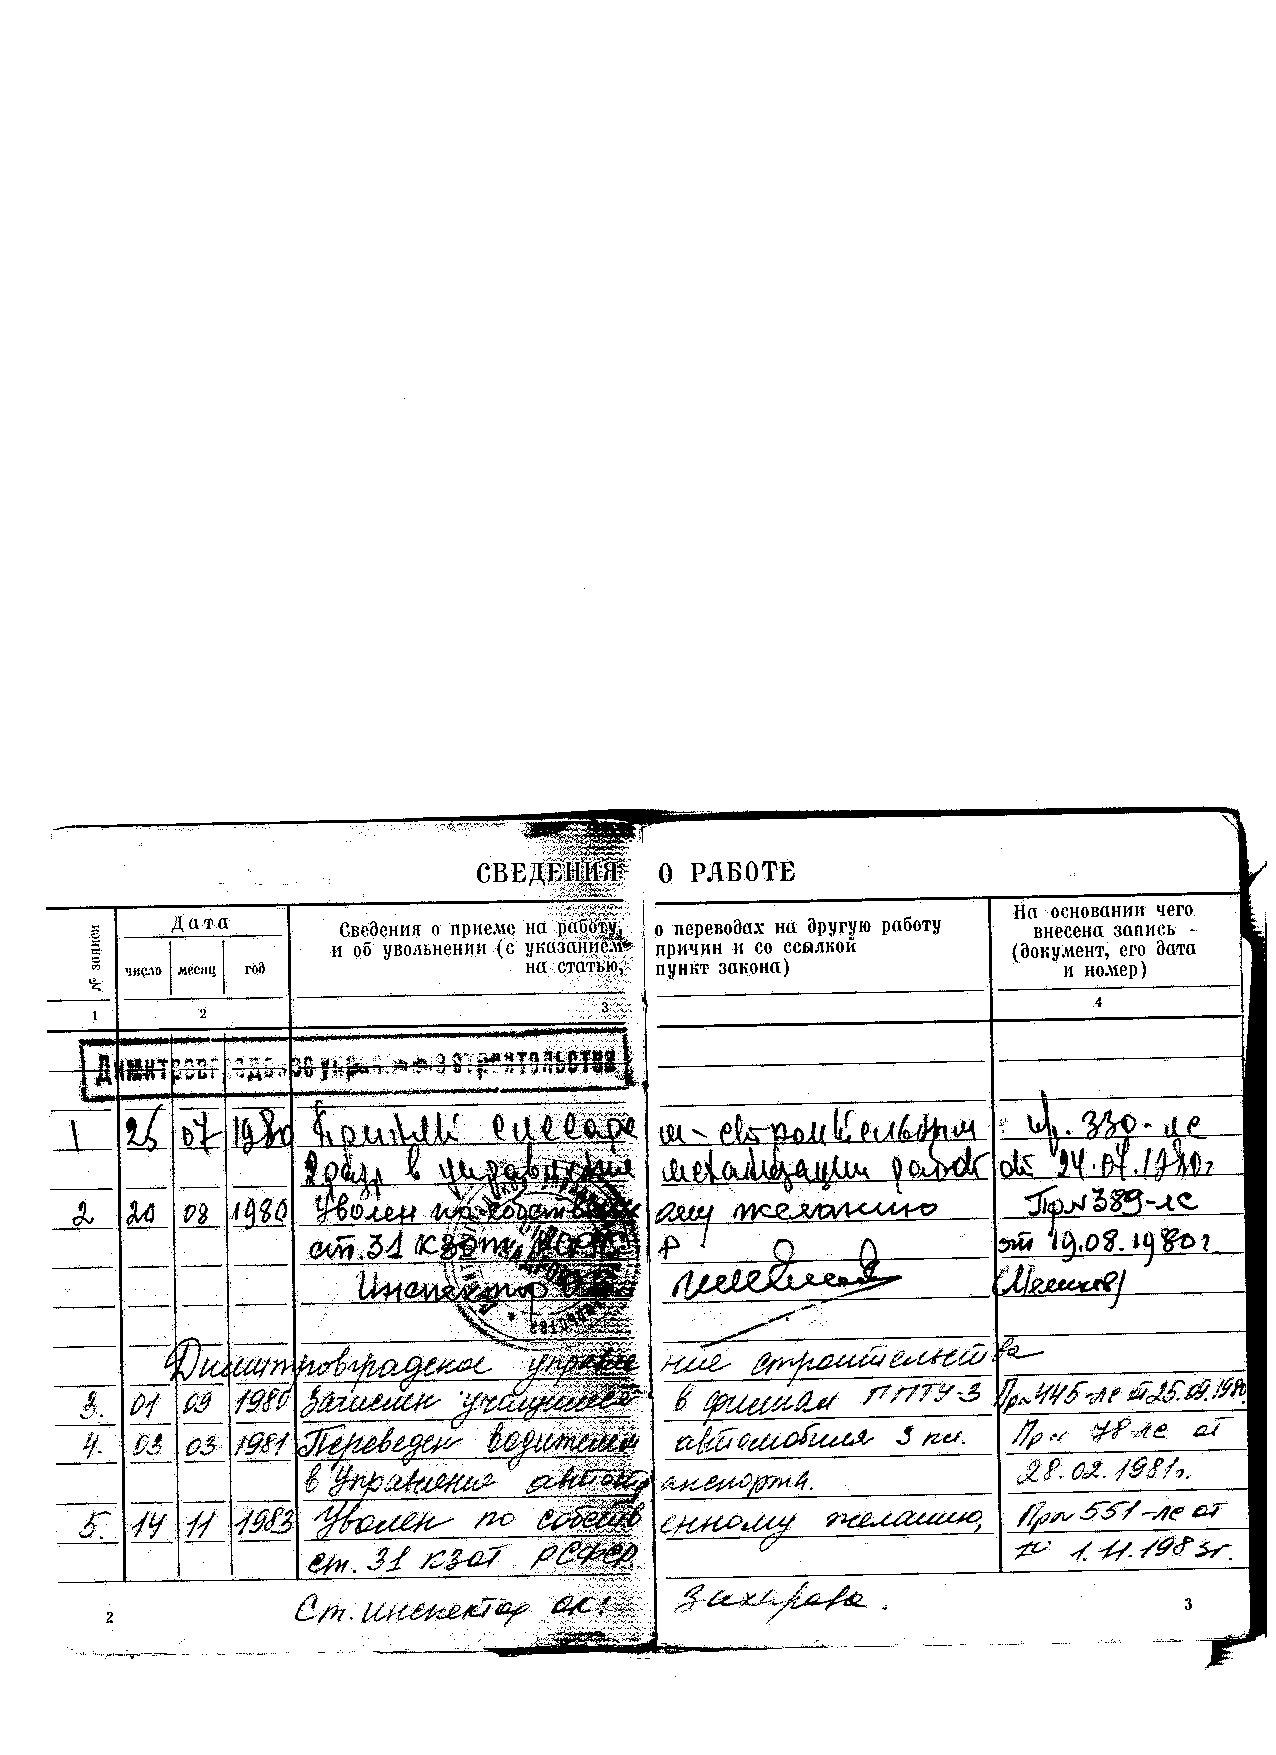 СВЕДЕНИЯ О РАБОТЕ
№ записи
Дата
число месяц год
Сведения о приеме на работу, о переводах на другую работу
и об увольнении (с указанием причин и со ссылкой
на статью, пункт закона)
На основании чего
внесена запись
(документ, его дата
и номер)
1 2 3 4
Димитровградское управление строительства
1 25 07 1980 Принят слесарем-строительным пр. 330-лс
2 разр. в управление механизации работ от 24.07.1980г
2 20 08 1980 Уволен по собственному желанию Пр№389-лс
ст. 31 КЗоТ РСФСР от 19.08.1980г
Инспектор
Димитровградское управление строительства
3. 01 09 1980 Зачислен учащимся в филиал ГПТУ-3 Пр№445-лс от 25.09.1980.
4. 03 03 1981 Переведен водителем автомобиля 3 кл. Пр№ 78-лс от
в Управление автотранспорта. 28.02.1981г.
5. 14 11 1983 Уволен по собственному желанию, Пр№551-лс от
ст. 31 КЗоТ РСФСР 1.11.1983г.
Ст. инспектор ок: Захарова.
2 3